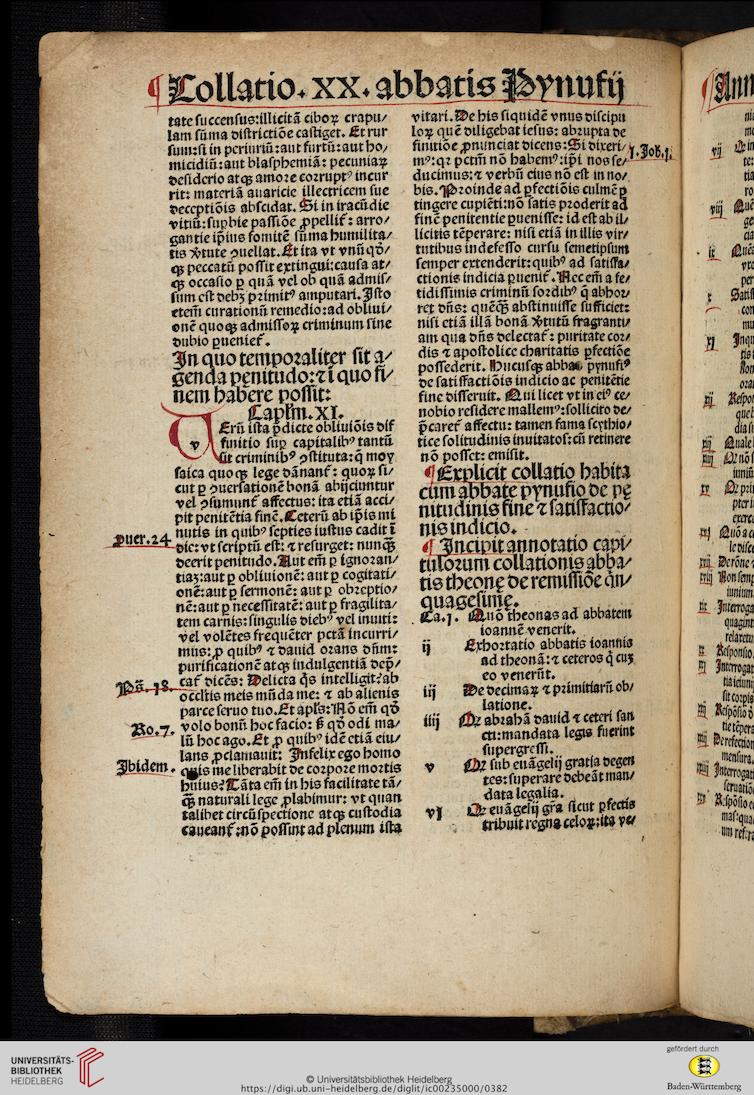 Collatio. XX. abbatis Pynufij
tate succensus: illicitā ciboꝝ crapu/
lam sūma districtiōe castiget. Et rur
sum: si in periuriū: aut furtū: aut ho/
micidiū: aut blasphemiā: pecuniaꝝ
desiderio atqꝫ amore corrupt⁹ incur
rit: materiā auaricie illectricem sue
deceptiōis abscidat. Si in iracūdie
vitiū: supbie passiōe ꝓpellit᷑: arro/
gantie ip̄ius fomitē sūma humilita/
tis v̄tute ꝯuellat. Et ita vt vnūqd̄/
qꝫ peccatū possit extingui: causa at/
qꝫ occasio ꝑ quā vel ob quā admis/
sum est debꝫ primit⁹ amputari. Isto
etem̄ curationū remedio: ad obliui/
onē quoqꝫ admissoꝝ criminum sine
dubio ꝑueniet᷑.
In quo temporaliter sit a/
genda penitudo: ⁊ ī quo fi/
nem habere possit:
Caplm̄. XI.
v Erū ista p̄dicte obliuiōis dif
finitio suꝑ capitalib⁹ tantū
fit criminib⁹ ꝯstituta: q̄ moy
saica quoqꝫ lege dānant᷑: quoꝝ si/
cut ꝑ ꝯuersationē bonā abijciuntur
vel ꝯsumunt᷑ affectus: ita etiā acci/
pit penitētia finē. Ceterū ab ip̄is mi
nutis in quib⁹ septies iustus cadit ī
die: vt scriptū est: ⁊ resurget: nunqꝫ̄
deerit penitudo. Aut em̄ ꝑ ignoran/
tiaꝫ: aut ꝑ obliuionē: aut ꝑ cogitati/
onē: aut ꝑ sermonē: aut ꝑ obreptio/
nē: aut ꝑ necessitatē: aut ꝑ fragilita/
tem carnis: singulis dieb⁹ vel inuiti:
vel volētes frequēter pctā incurri/
mus: ꝓ quib⁹ ⁊ dauid orans dn̄m:
purificationē atqꝫ indulgentiā dep̄/
cat᷑ dicēs: Delicta q̄s intelligit? ab
occl̄tis meis mūda me: ⁊ ab alienis
parce seruo tuo. Et apl̄s: Nō em̄ qd̄
volo bonū hoc facio: sꝫ qd̄ odi ma/
lū hoc ago. Et ꝓ quib⁹ idē etiā eiu/
lans ꝓclamauit: Infelix ego homo
quis me liberabit de corpore mortis
huius? Tāta em̄ in his facilitate tā/
qꝫ̄ naturali lege ꝓlabimur: vt quan
talibet circūspectione atqꝫ custodia
caueant᷑: nō possint ad plenum ista
puer. 24
Ps̄. 18.
Ro. 7.
Ibidem.
vitari. De his siquidē vnus discipu
loꝝ quē diligebat iesus: abrupta de
finitiōe ꝓnunciat dicens: Si dixeri/
m⁹: qꝛ pctm̄ nō habem⁹: ip̄i nos se/
ducimus: ⁊ verbū eius nō est in no/
bis. Proinde ad ꝑfectiōis culmē ꝑ
tingere cupiēti: nō satis proderit ad
finē penitentie ꝑuenisse: id est ab il/
licitis tēperare: nisi etiā in illis vir/
tutibus indefesso cursu semetipsum
semper extenderit: quib⁹ ad satisfa/
ctionis indicia ꝑuenit᷑. Nec em̄ a fe/
tidissimis criminū sordib⁹ q̄ abhor/
ret dn̄s: quēqꝫ̄ abstinuisse sufficiet:
nisi etiā illā bonā v̄tutū fragranti/
am qua dn̄s delectat᷑: puritate cor/
dis ⁊ apostolice charitatis ꝑfectiōe
possederit. Hucusqꝫ abbas pynufi⁹
de satisfactiōis indicio ac penitētie
fine disseruit. Qui licet vt in ei⁹ ce/
nobio residere mallem⁹: sollicito de/
p̄caret᷑ affectu: tamen fama scythio/
tice solitudinis inuitatos: cū retinere
nō posset: emisit.
1. Joh. 1.
¶ Explicit collatio habita
cum abbate pynufio de pę
nitudinis fine ⁊ satisfactio/
nis indicio.
¶ Incipit annotatio capi/
tulorum collationis abba/
tis theonę de remissiōe qn̄/
quagesimę.
Ca. j. Quō theonas ad abbatem
ioannē venerit.
ij Exhortatio abbatis ioannis
ad theonā: ⁊ ceteros q̄ cuꝫ
eo venerūt.
iij De decimaꝝ ⁊ primitiarū ob/
latione.
iiij Qꝛ abrahā dauid ⁊ ceteri san
cti: mandata legis fuerint
supergressi.
v Qꝛ sub euāgelij gratia degen
tes: superare debeāt man/
data legalia.
vj Qꝛ euāgelij gr̄a sicut ꝑfectis
tribuit regna celoꝝ: ita ve/
UNIVERSITÄTS-
BIBLIOTHEK
HEIDELBERG
© Universitätsbibliothek Heidelberg
https://digi.ub.uni-heidelberg.de/diglit/ic00235000/0382
gefördert durch
Baden-Württemberg